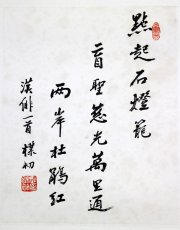 點起石燈籠
盲聖慈光萬里通
兩岸杜鵑紅
漢俳一首 樸初